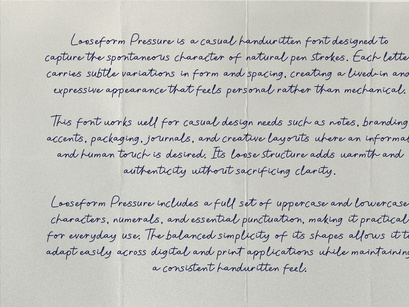 Looseform Pressure is a casual handwritten font designed to
capture the spontaneous character of natural pen strokes. Each lette
carries subtle variations in form and spacing, creating a lived-in and
expressive appearance that feels personal rather than mechanical.
This font works well for casual design needs such as notes, branding
accents, packaging, journals, and creative layouts where an informa
and human touch is desired. Its loose structure adds warmth and
authenticity without sacrificing clarity.
Looseform Pressure includes a full set of uppercase and lowercase
characters, numerals, and essential punctuation, making it practical
for everyday use. The balanced simplicity of its shapes allows it t
adapt easily across digital and print applications while maintaining
a consistent handwritten feel.